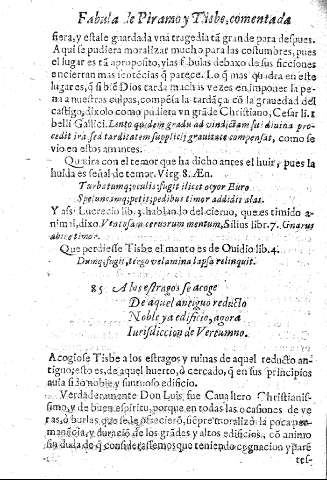 Fabula de Piramo y Tisbe, comentada
fiera, y estale guardada vna tragedia tã grande para despues.
Aqui se pudiera moralizar mucho para las costumbres, pues
el lugar es tã aproposito, y las fabulas debaxo de sus ficciones
encierran mas secretos de lo q̃ parece. Lo q̃ mas quadra en este
lugar es, q̃ si biẽ Dios tarda muchas vezes en imponer la pe
na a nuestras culpas, compẽsa la tardãça cõ la grauedad del
castigo, dixolo como pudiera vn grã de Christiano, Cesar li. 1
belli Gallici. Lento quidem gradu ad vindictam sui diuina pro
cedit ira sed tarditatem supplicij grauitate compensat, como se
vio en estos amantes.
Quadra con el temor que ha dicho antes el huir, pues la
huida es señal de temor. Virg 8. Æn.
Turbatumq; oculis: fugit ilicet ocyor Euro
Speluncamq; petit; pedibus timor addidit alas.
Y assi Lucrecio lib 3. hablando del cieruo, que es timido a-
nimal, dixo Ventosa in ceruorum mentum, Silius libr. 7. Gnarus
abire timor.
Que perdiesse Tisbe el manto es de Ouidio lib. 4.
Dumq; fugit, tergo velamina lapsa relinquit.
85 A los estragos se acoge
De aquel antiguo reducto
Noble ya edificio, agora
Iurisdiccion de Vertumno.
Acogiose Tisbe a los estragos y ruinas de aquel reducto an-
tiguo; esto es, de aquel huerto, ò cercado, q̃ en sus principios
auia sido noble, y suntuoso edificio.
Verdaderamente Don Luis, fue Cauallero Christianis-
simo, y de buen espiritu, porque en todas las ocasiones de ve
ras, ò burlas que se le ofrecierõ, siẽpre moralizò la poca per
manẽcia, y duraciõ de los grãdes y altos edificios, cõ animo
sin duda de q̃ considerassemos que teniendo cognacion y pare
tes-